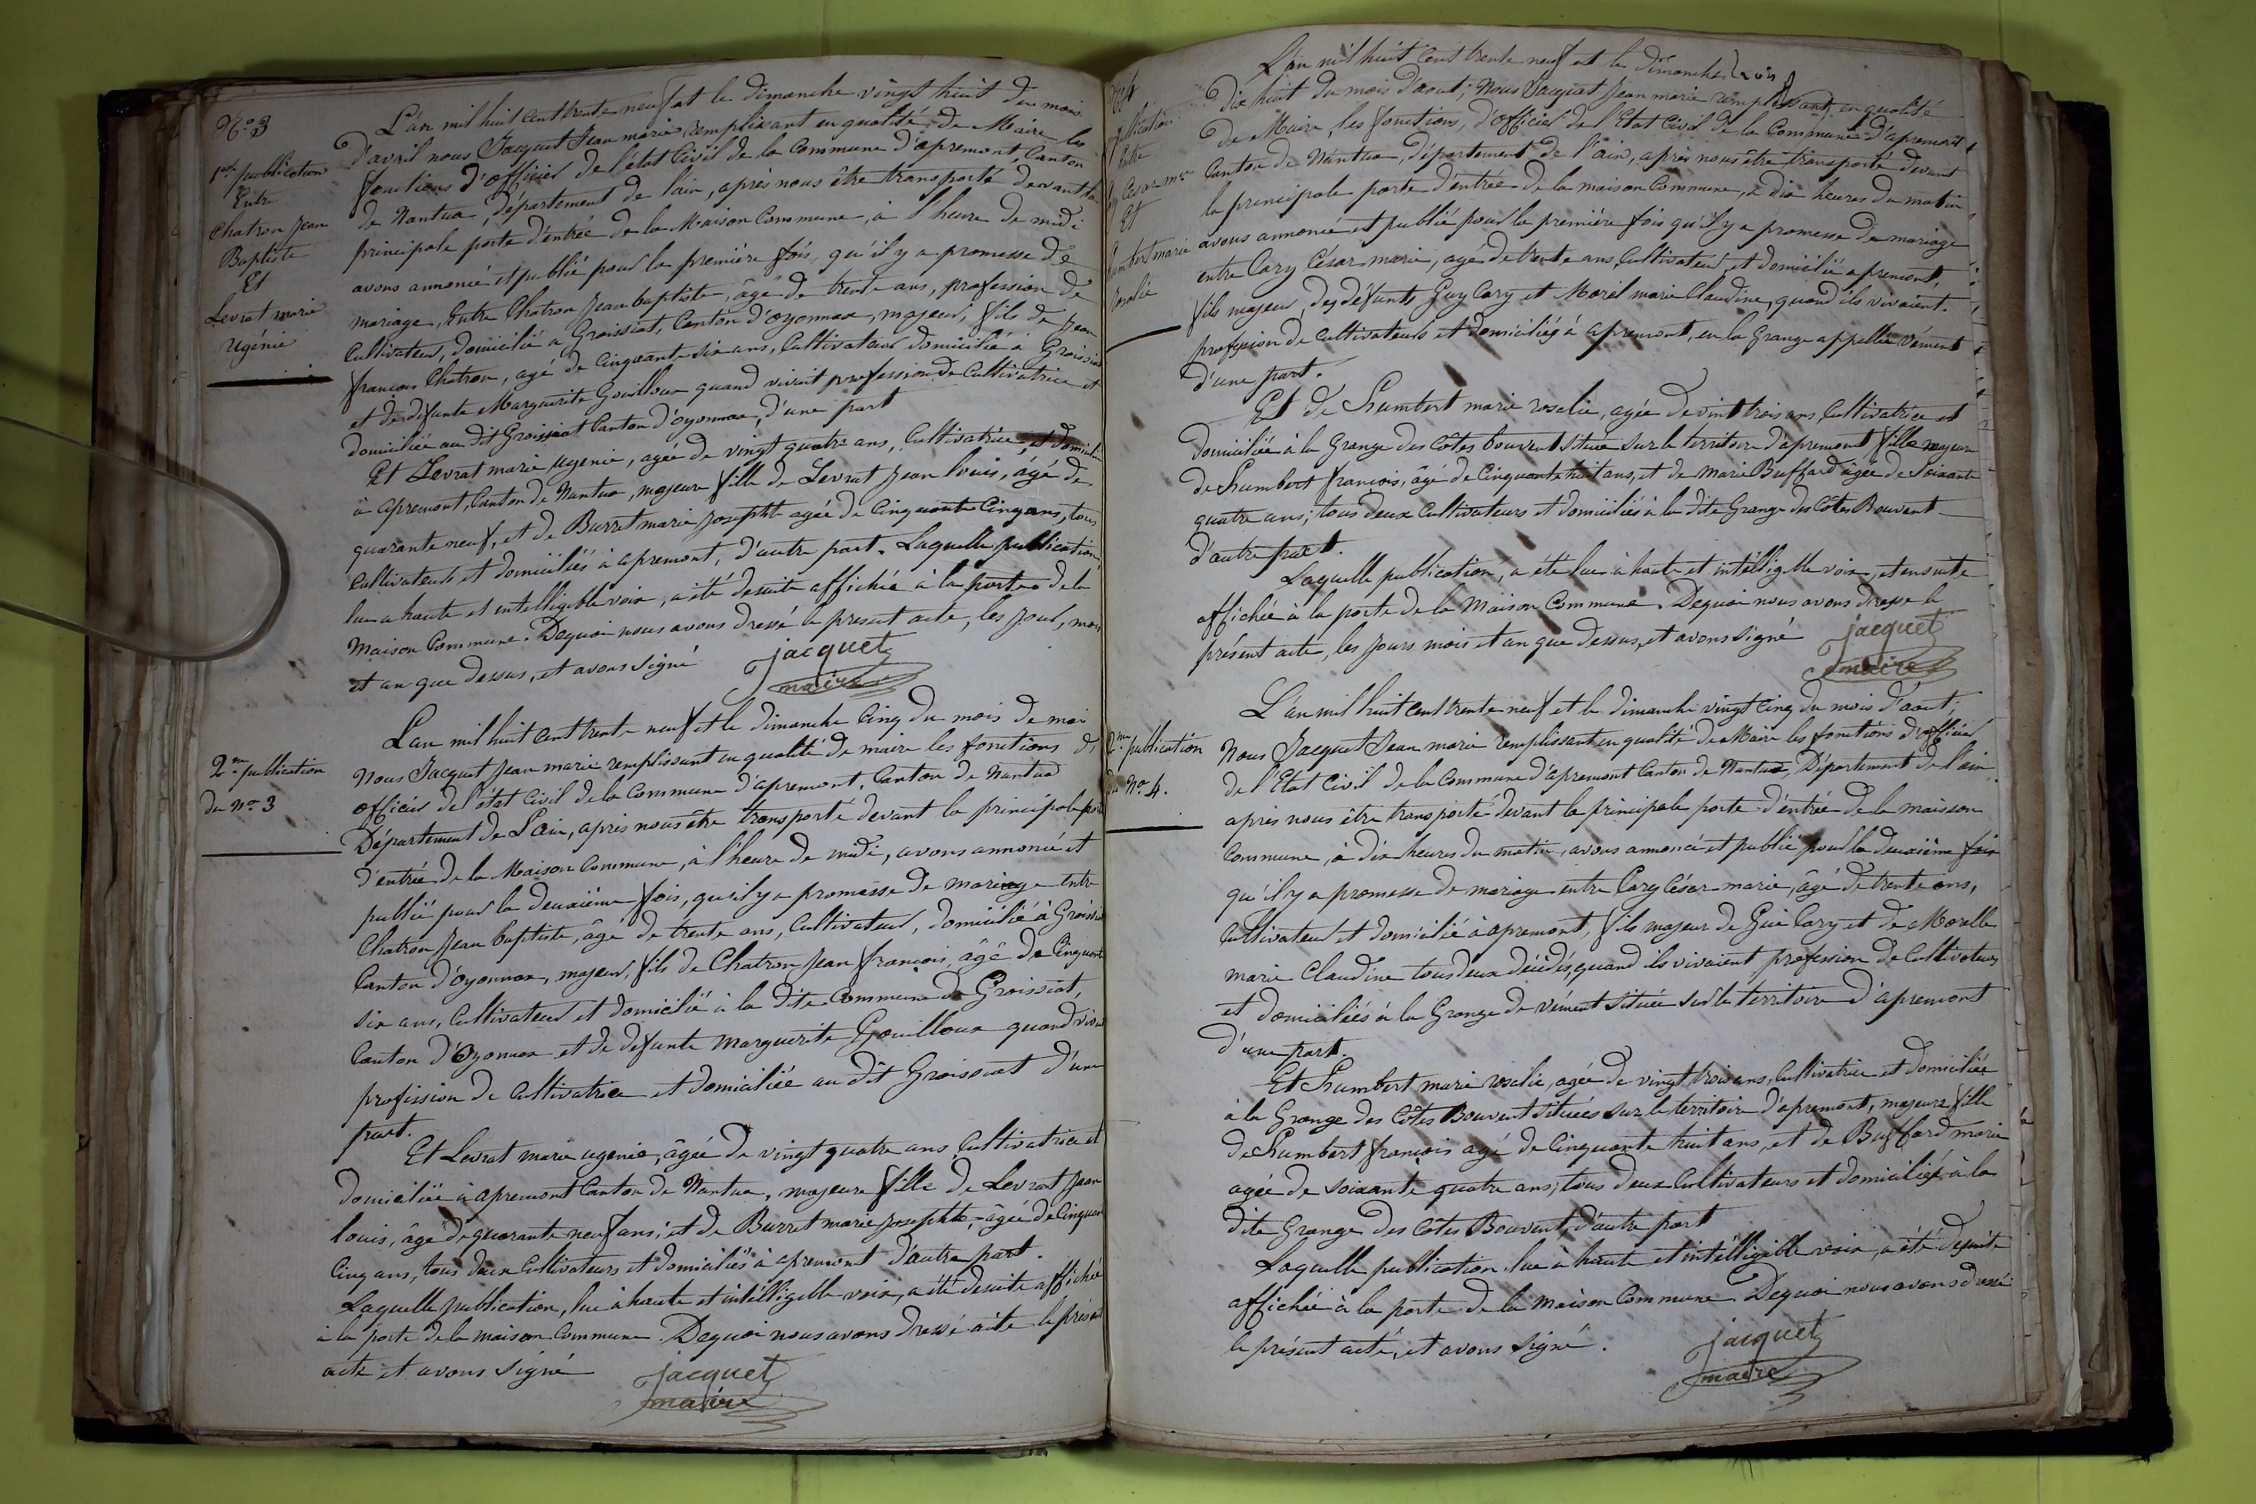 N.o 3
1ère publication
Entre
Chatron Jean
Baptiste
Et
Levrat marie
ugénie
L'an mil huit cent trente neuf et le dimanche vingt huit du mois
d'avril nous Jacquet Jean marie, remplissant en qualité de Maire les
fonctions d'officier de l'état Civil de la Commune d'apremont, Canton
de Nantua, département de l'ain, après nous être transporté devant la
principale porte d'entrée de la Maison Commune, à l'heure de midi
avons annoncé et publié pour la première fois, qu'il y a promesse de
mariage, Entre Chatron Jean baptiste, âgé de trente ans, profession de
Cultivateur, domicilié a Groissiat, Canton d'oyonnax, majeur, fils de Jean
françois Chatron, agé de cinquante six ans, Cultivateur domicilié à Groissiat
et de défunte Marguerite Gouilloux quand vivait profession de Cultivatrice et
domiciliée au dit Groissiat Canton d'oyonnax, d'une part
Et Levrat marie ugenie, agée de vingt quatre ans, Cultivatrice, et domiciliée
à apremont, Canton de Nantua, majeure fille de Levrat Jean louis, âgé de
quarante neuf, et de Burret marie Josephte agée de Cinquante Cinq ans, tous
cultivateurs et domiciliés à apremont, d'autre part. Laquelle publication,
lue a haute et intelligible voix, a été desuite affichée à la porte de la
Maison Commune. Dequoi nous avons dressé le present acte, les jour, mois
et an que dessus, et avons signé
jacquet
maire
2.me publication
du N.o 3
L'an mil huit cent trente neuf et le dimanche Cinq du mois de mai
Nous Jacquet Jean marie remplissant en qualité de maire les fonctions d'
officier de l'état Civil de la Commune d'apremont, Canton de Nantua
Département de L'ain, après nous être transporté devant la principale porte
d'entrée de la Maison Commune, à l'heure de midi, avons annoncé et
publié pour la deuxième fois, qu'il y a promesse de mariage entre
Chatron Jean baptiste, âgé de trente ans, Cultivateur, domicilié à Groissiat
Canton d'oyonnax, majeur, fils de Chatron Jean françois, âgé de Cinquante
six ans, Cultivateur et domicilié à la dite Commune de Groissiat,
Canton d'Oyonnax et de defunte Marguerite Gouilloux quand vivait
profession de Cultivatrice et domiciliée au dit Groissiat d'une
part.
Et Levrat marie ugenie, âgée de vingt quatre ans Cultivatrice et
domiciliée à apremont Canton de Nantua, majeure fille de Levrat Jean
louis, âgé de quarante neuf ans, et de Burret marie Josephte, âgée de Cinquante
Cinq ans, tous deux Cultivateurs et domiciliés à apremont d'autre part.
Laquelle publication, lue à haute et intelligible voix, a été desuite affichée
à la porte de la maison Commune. Dequoi nous avons dressé acte le présent
acte et avons signé
jacquet
maire
publication
Entre
Cesar m.ie
Et
humbert marie
rosalie
L'an mil huit Cent trente neuf et le dimanche
Dix huit du mois d'aout; Nous Jacquet Jean marie remplissant en qualité
de Maire, les fonctions, d'officier de l'Etat Civil de la Commune d'apremont
Canton de Nantua, département de l'ain, après nous être transporté devant
la principale porte d'entrée de la maison Commune, à dix heures du matin
avons annoncé et publié pour la première fois qu'il y a promesse de mariage
entre Cary César marie, agé de trente ans, Cultivateur et domicilié apremont,
fils majeur, des défunts Guy Cary et Morel marie Claudine, quand ils vivaient
profession de cultivateurs et domiciliés à apremont, en la Grange appellée Vément
d'une part.
Et de humbert marie rosalie, agée de vint trois ans, Cultivatrice et
domiciliée à la Grange des Côtes bouvent située sur le territoire d'apremont fille majeure
de humbert françois, âgé de Cinquante huit ans, et de Marie Buffard âgée de Soixante
quatre ans; tous deux Cultivateurs et domiciliés à la dite Grange des Côtes Bouvent
d'autre part.
Laquelle publication, a été lue à haute et intélligible voix, et ensuite
affichée à la porte de la Maison Commune. Dequoi nous avons dressé le
présent acte, les jours mois et an que dessus, et avons signé
jacquet
maire
2.me publication
du N.o 4.
L'an mil huit Cent trente neuf et le dimanche vingt Cinq du mois d'août,
Nous Jacquet Jean marie remplissant en qualité de Maire les fonctions d'officier
de l'Etat Civil de la Commune d'apremont Canton de Nantua, Département de l'ain
après nous être transporté devant la principale porte d'entrée de la maison
Commune, à dix heures du matin, avons annoncé et publié pour la deuxième fois
qu'il y a promesse de mariage entre Cary César marie, âgé de trente ans,
Cultivateur et domicilié à apremont, fils majeur de Gui Cary et de Morelle
marie Claudine tous deux décédés, quand ils vivaient profession de Cultivateurs
et domiciliés à la Grange de vément située sur le territoire d'apremont
d'une part.
Et humbert marie rosalie, agée de vingt trois ans, Cultivatrice et domiciliée
à la Grange des Côtes Bouvent situées sur le territoire d'apremont, majeure fille
de humbert françois agé de Cinquante huit ans, et de Buffard marie
agée de soixante quatre ans, tous deux Cultivateurs et domiciliés à la
dite Grange des Côtes Bouvent, d'autre part
Laquelle publication lue à haute et intélligible voix, a été desuite
affichée à la porte de la maison Commune Dequoi nous avons dressé
le présent acte, et avons signé.
jacquet
maire